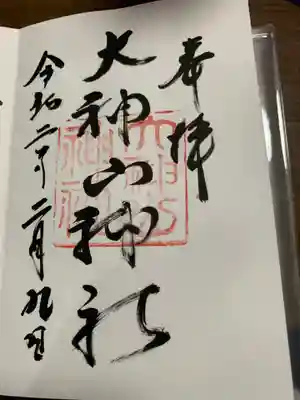 奉拝
大神山神社
令和二年二月九日